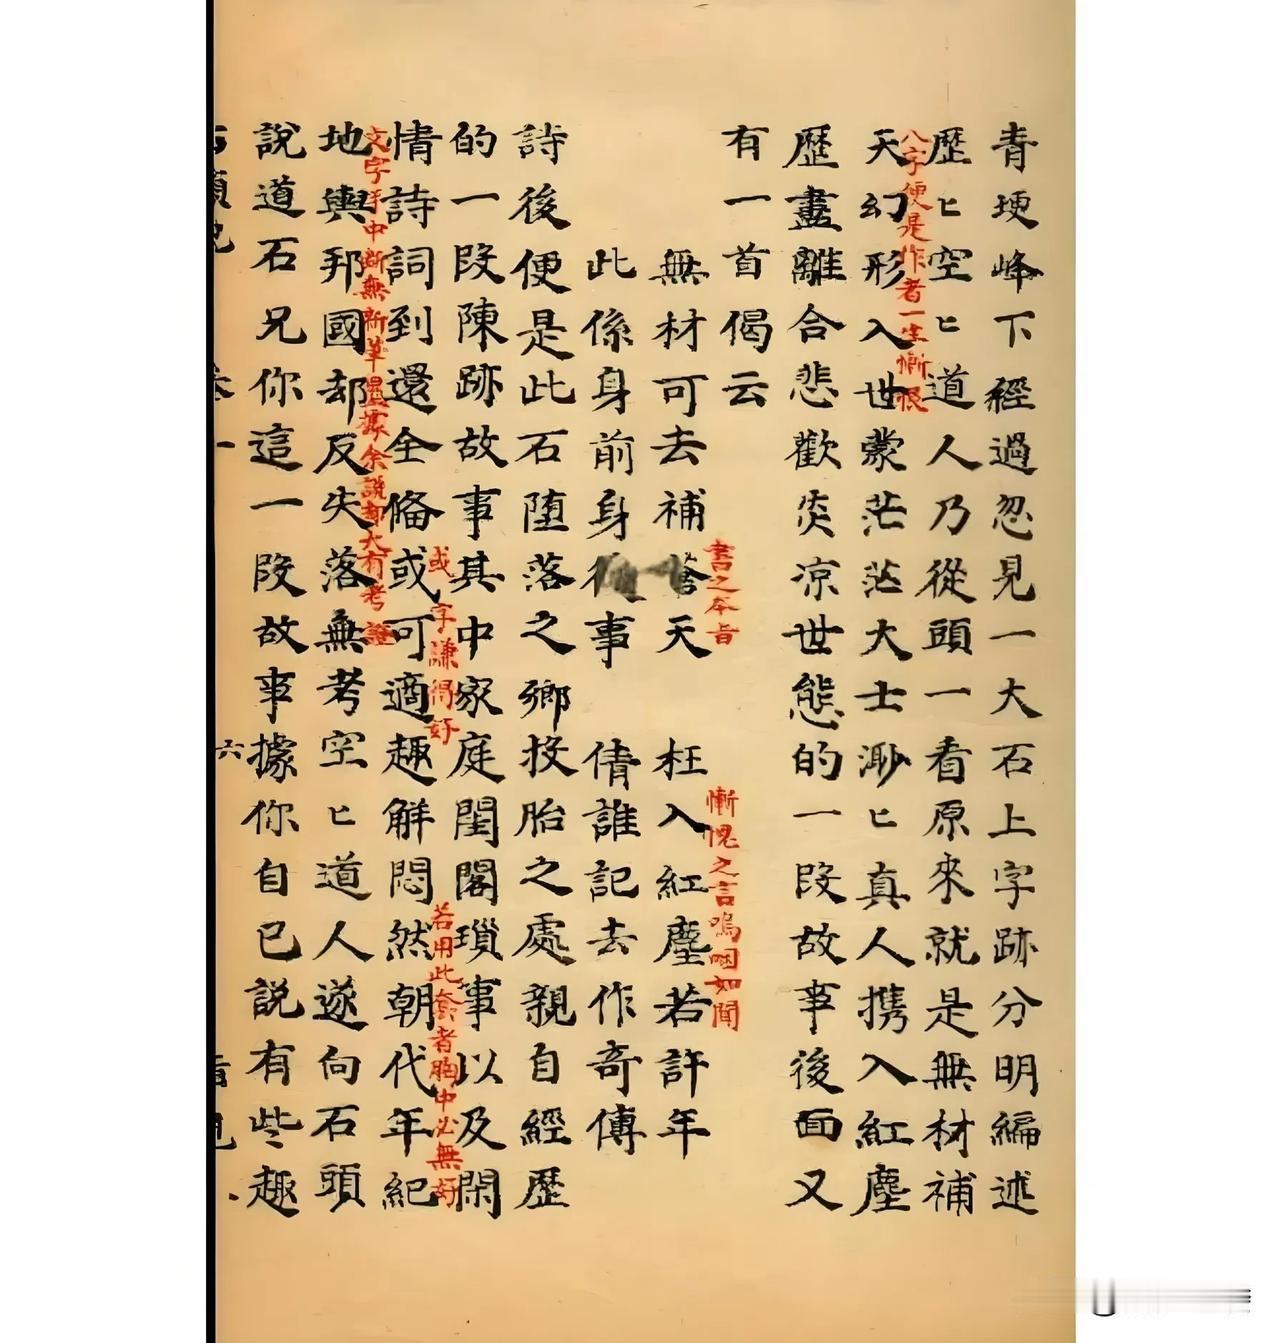 青埂峰下經過忽見一大石上字跡分明編述
歷匕空匕道人乃從頭一看原來就是無材補
八字便是作者一生慚恨
天幻形入世蒙茫茫大士渺匕真人携入紅塵
歷盡離合悲歡炎凉世態的一段故事後面又
有一首偈云
書之本旨
慚愧之言嗚咽如聞
無材可去補蒼天 枉入紅塵若許年
此係身前身後事 倩誰記去作奇傳
詩後便是此石墮落之鄉投胎之處親自經歷
的一段陳跡故事其中家庭閨閣瑣事以及閑
或字謙得好
若用此套者胸中必無好
情詩詞到還全俻或可適趣解悶然朝代年紀
文字手中斷無新筆墨據余說却大有考證
地輿邦國却反失落無考空匕道人遂向石頭
說道石兄你這一段故事據你自己說有些趣
卷一
六